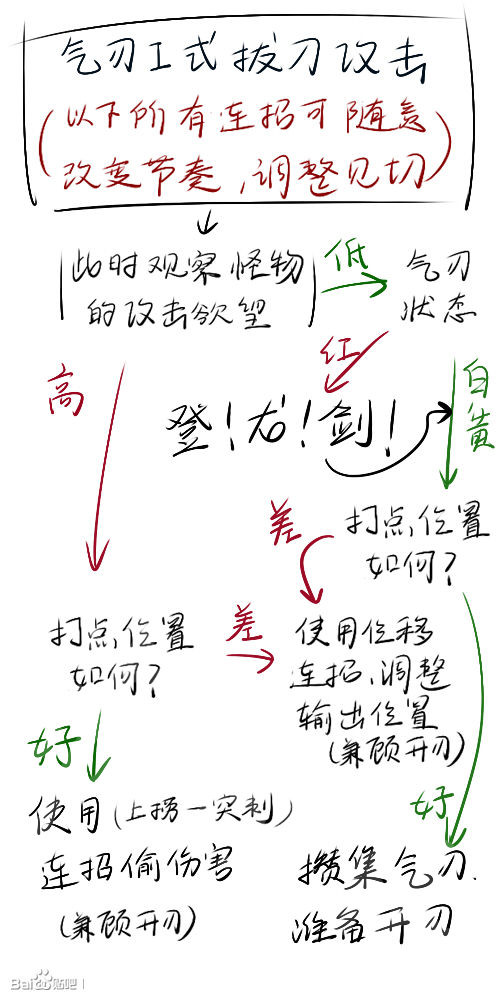 气刃I式拔刀攻击
(以下所有连招可随意
改变节奏,调整见切)
此时观察怪物
的攻击欲望
低
气刃
状态
高
红
白
黄
登!龙!剑!
差
打点,位置
如何?
打点,位置
如何?
差
使用位移
连招,调整
输出位置
(兼顾开刃)
好
使用(上捞—突刺)
连招偷伤害
(兼顾开刃)
好
攒集气刃.
准备开刃
Bai贴吧